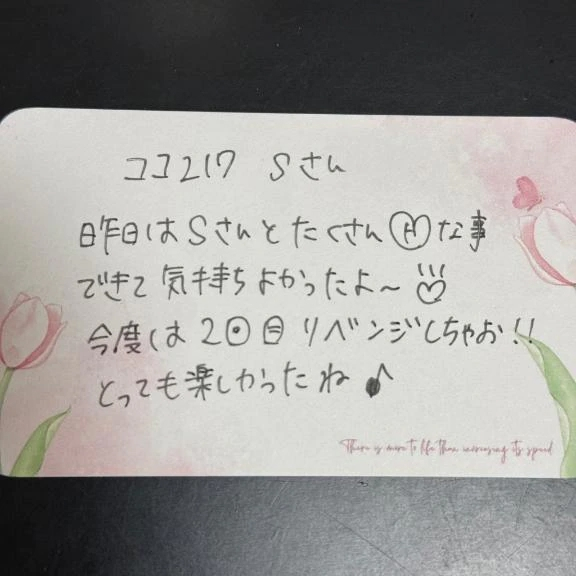 ココ217 Sさん
昨日はSさんとたくさんⒽな事
できて気持ちよかったよ〜
今度は2回目リベンジしちゃお!!
とっても楽しかったね♪
There is more to life than increasing its speed